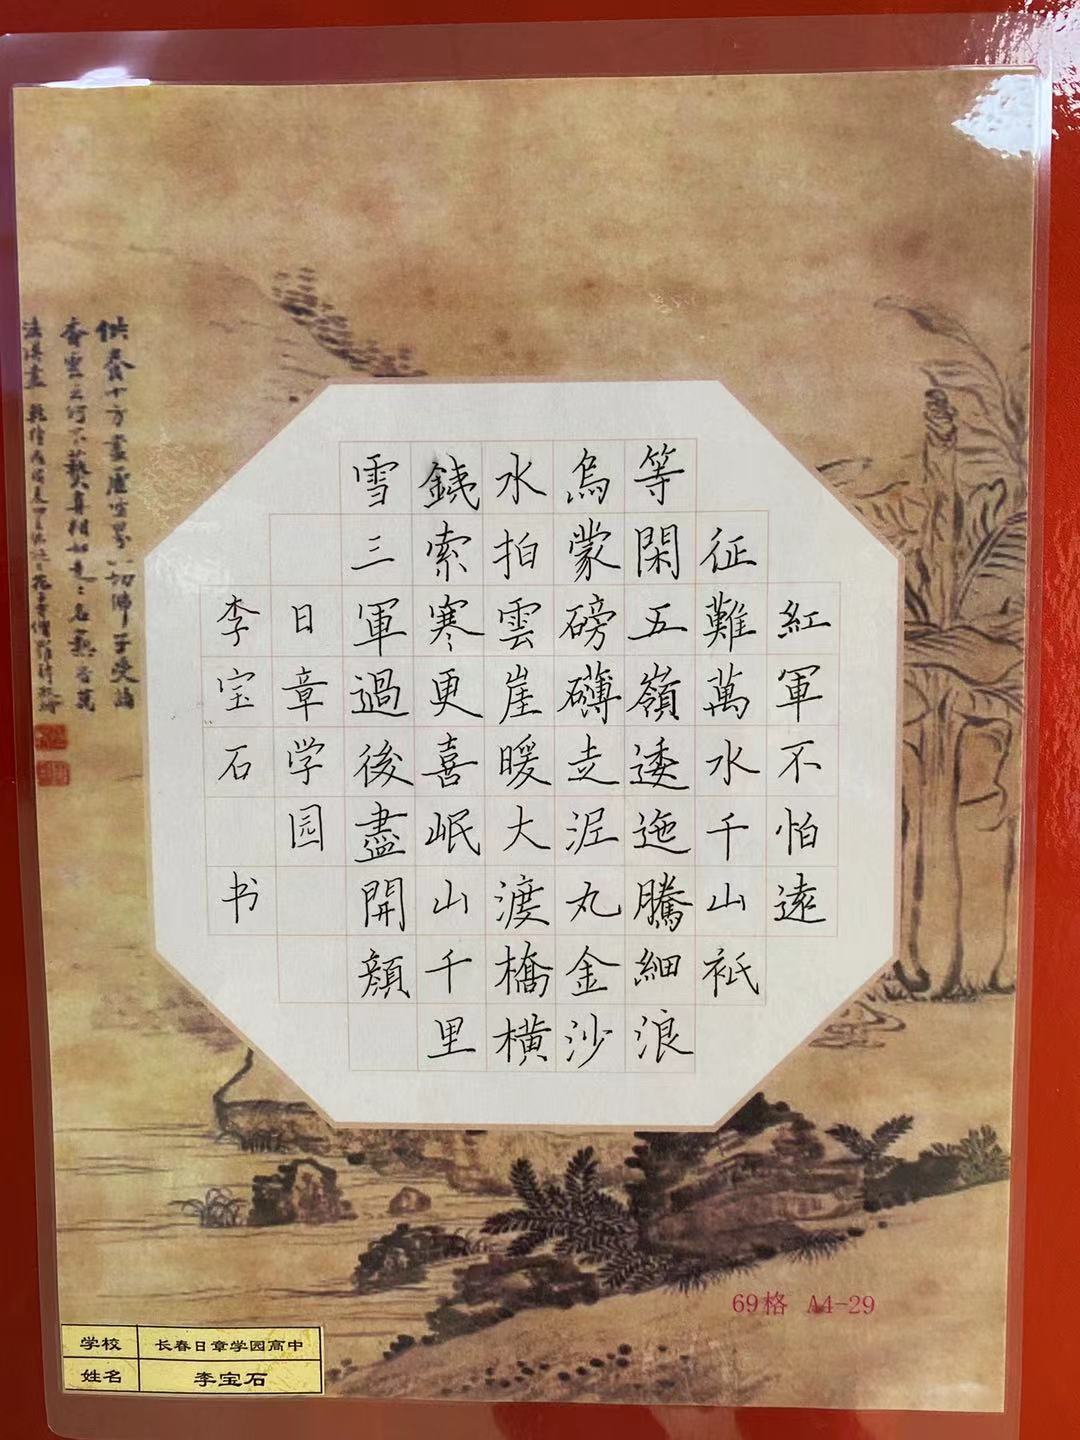 紅軍不怕遠
征難萬水千山祇
等閑五嶺逶迤騰細浪
烏蒙磅礴走泥丸金沙
水拍雲崖暖大渡橋橫
銕索寒更喜岷山千里
雪三軍過後盡開顏
日章学园
李宝石 书
供養十方盡虛空界一切佛子受
69格 A4-29
学校 长春日章学园高中
姓名 李宝石